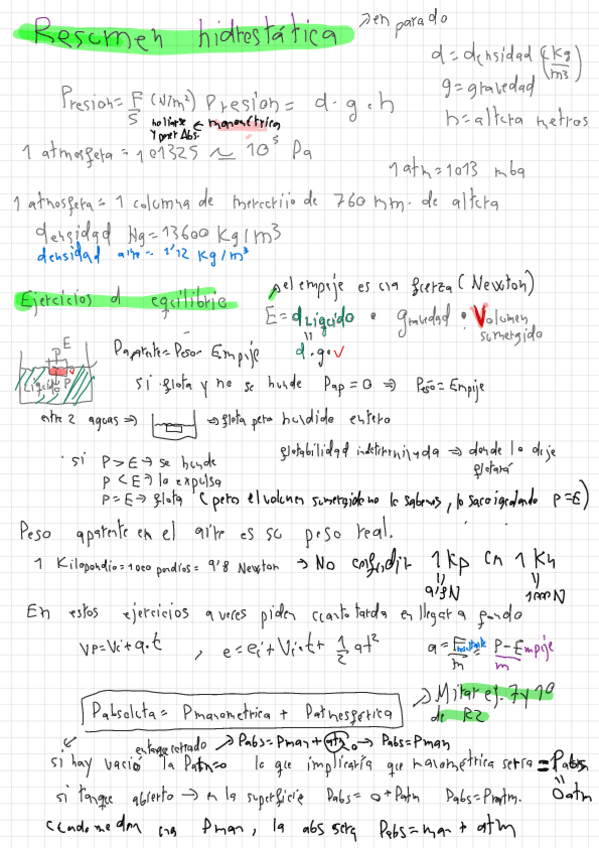 Resumen hidrostática → en parado
d = densidad (Kg/m³)
g = gravedad
h = altura metros
Presion = F/S (N/m²) Presion = d · g · h
no liarse y poner Abs. ← manométrica
1 atmosfera = 101325 ≃ 10⁵ Pa
1 atm = 1013 mba
1 atmosfera = 1 columna de mercurio de 760 mm. de altura
densidad Hg = 13600 Kg/m³
densidad aire = 1'12 Kg/m³
Ejercicios d equilibrio
→ el empuje es una fuerza (Newton)
E = d Liquido · gravedad · Volumen sumergido
d · g · v
P E
Liquido P
Paparente = Peso - Empuje
si flota y no se hunde Pap = 0 ⇒ Peso = Empuje
entre 2 aguas ⇒ ⇒ flota pero hundido entero
flotabilidad indeterminada ⇒ donde lo deje flotará
· si P > E → se hunde
P < E → lo expulsa
P = E → flota (pero el volumen sumergido no lo sabemos, lo saco igualando P = E)
Peso aparente en el aire es su peso real.
1 Kilopondio = 1000 pondios = 9'8 Newton → No confundir 1 kp con 1 KN
9'8N 1000N
En estos ejercicios a veces piden cuanto tarda en llegar a fondo
VF = Vi + a·t , e = ei + Vi·t + 1/2 at²
a = F resultante/m = P - Empuje/m
Pabsoluta = Pmanometrica + Patmosferica
→ Mirar ej. 7 y 10 de R2
en tanque cerrado → Pabs = Pman + atm 0 → Pabs = Pman
si hay vacio la Patm = 0 lo que implicaría que manometrica seria = Pabs
0 atm
si tanque abierto → en la superficie Pabs = 0 + Patm Pabs = Patm.
cuando me dan una Pman, la abs será Pabs = man + atm